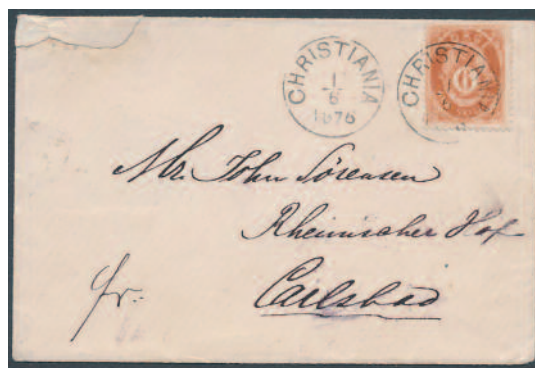 CHRISTIANIA
1
6
1876
CHRISTIANIA
Mr. John Sörensen
Rheinischer Hof
Carlsbad
fr.